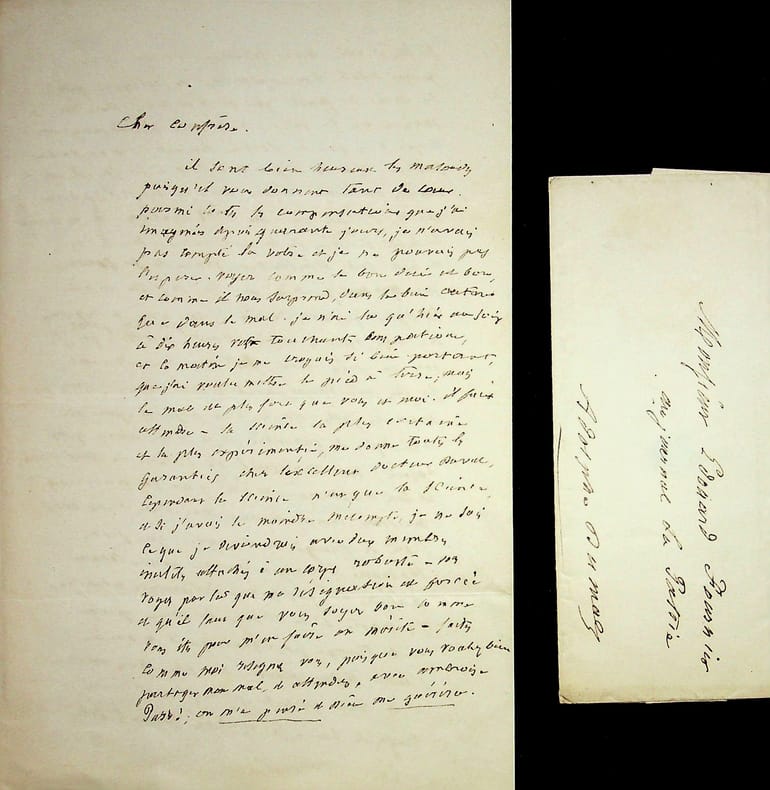 Cher confrère.
il sont bien heureux les malades
puisqu'il vous donnent tant de cœur.
parmi toutes les compensations que j'ai
imaginés depuis quarante jours, je n'avais
pas compté la votre et je ne pouvais pas
l'espérer. voyez comme le bon dieu est bon
et comme il nous surprend, dans le bien autant
que dans le mal. je n'ai lu qu'hier au soir
à dix heures votre touchante
et ce matin je me croyais si bien portant,
que j'ai voulu mettre le pied à terre, mais
le mal est plus fort que vous et moi. il faut
attendre - la science la plus certaine
et la plus expérimentée, me donne toutes les
garanties chez l'excellent docteur
Cependant la science n'est que la science,
et si j'avais le moindre mécompte, je ne sais
ce que je deviendrais avec des membres
inutiles attachés à un corps robuste -
voyez par là que ma résignation est forcée
et qu'il faut que vous soyez bon comme
vous êtes pour m'en faire un mérite - faites
comme moi résignez vous, puisque vous voulez bien
partager mon mal, et attendez, avec ambroise
Paré; on m'a pansé et dieu me guérira.
Monsieur Edouard Fournier
au journal La Patrie
Adolphe Dumas